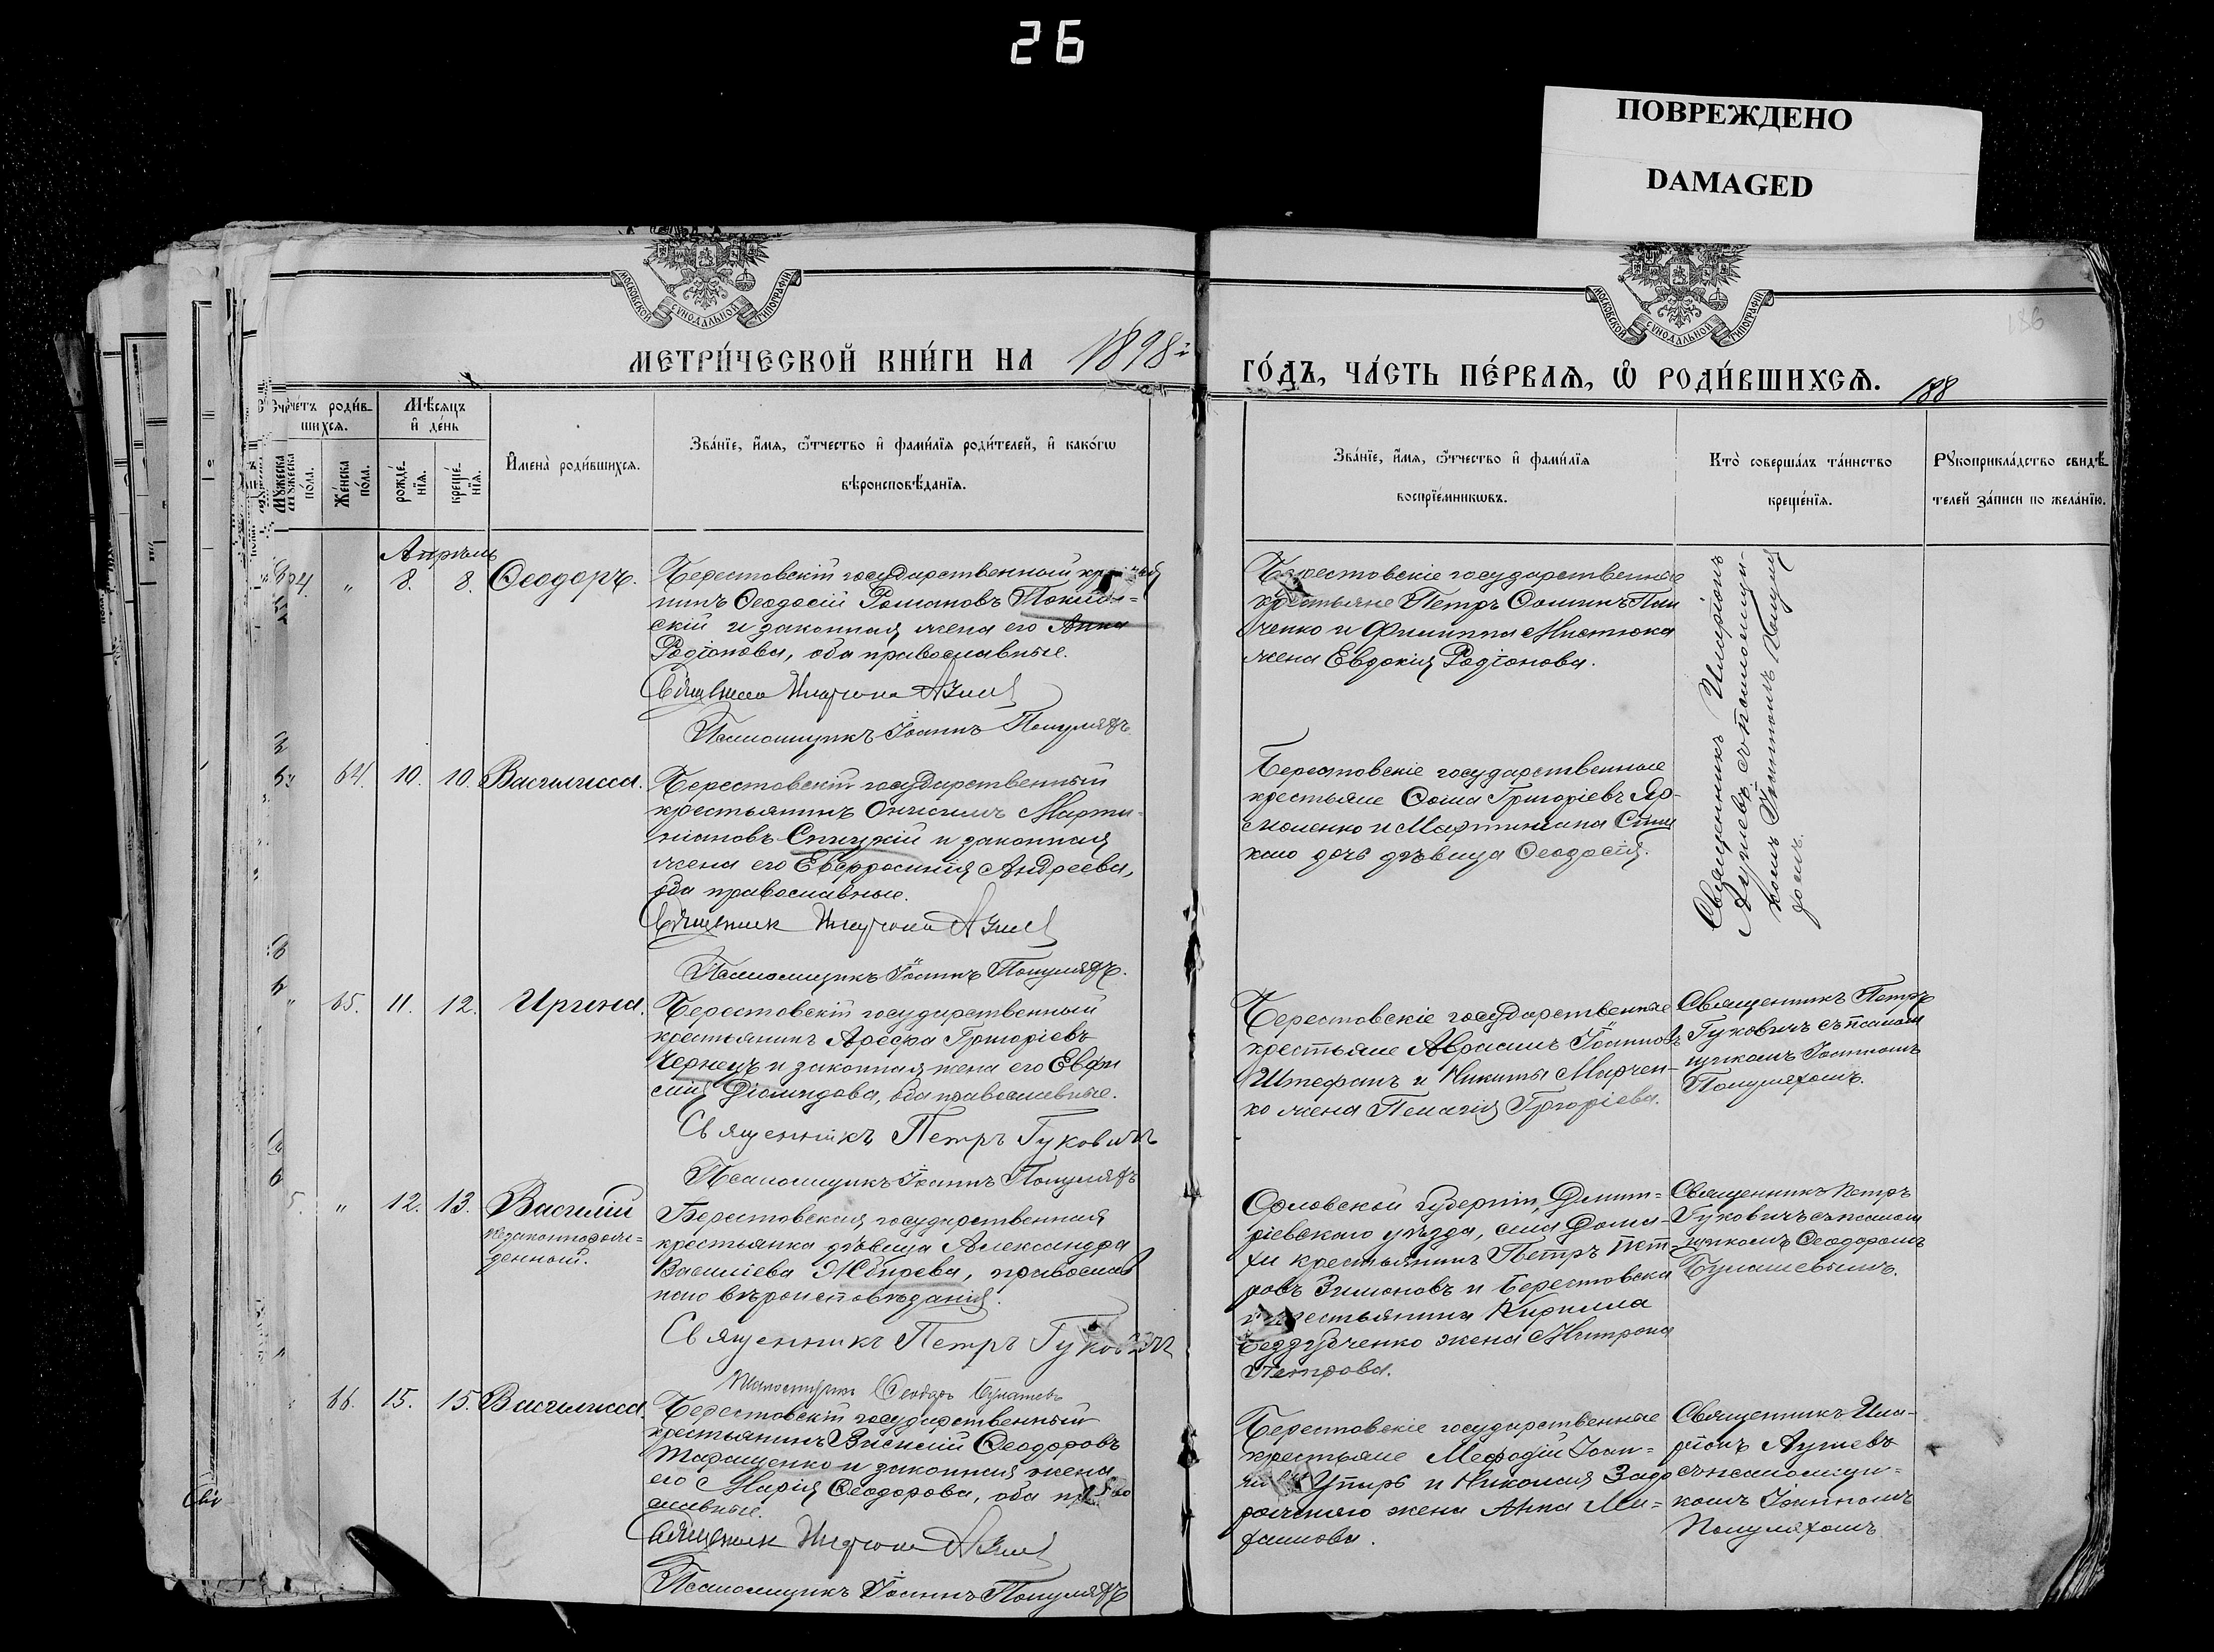 26
ПОВРЕЖДЕНО
DAMAGED
МОСКОВСКОЙ СѴНОДАЛЬНОЙ ТИПОГРАФІИ
МОСКОВСКОЙ СѴНОДАЛЬНОЙ ТИПОГРАФІИ
186
МЕТРИ́ЧЕСКОЙ КНИ́ГИ НА 1898
ГО́ДЪ, ЧА́СТЬ ПЕ́РВАѦ, Ѡ҆ РОДИ́ВШИХСѦ.
188
Сче́тъ роди́в-
шихсѧ.
Мѣ́сѧцъ
и҆ де́нь
Мꙋ́жеска
по́ла.
Же́нска
по́ла.
рожде́-
нїѧ.
креще́-
нїѧ.
И҆мена̀ роди́вшихсѧ.
Зва́нїе, и҆́мѧ, ѻ҆́тчество и҆ фами́лїѧ роди́телей, и҆ како́гѡ
вѣроисповѣ́данїѧ.
Зва́нїе, и҆́мѧ, ѻ҆́тчество и҆ фами́лїѧ
воспрїе́мникѡвъ.
Кто̀ соверша́лъ та́инство
креще́нїѧ.
Рꙋкоприкла́дство свидѣ́-
телей за́писи по жела́нїю.
Апрѣль
64. " 8. 8. Ѳеодоръ.
Берестовскій государственный
нинъ Ѳеодосій Романовъ
скій и законная жена его Анна
Родіонова, оба православные.
Священникъ Иларіонъ
Псаломщикъ Іоаннъ Популяхъ
Берестовскіе государственные
крестьяне Петръ Ѳоминъ Пан
ченко и Филиппа Мистюка
жена Евдокія Родіонова.
Священникъ Иларіонъ
съ псаломщи-
комъ Іоанномъ Популя
хомъ.
" 64. 10. 10. Василисса.
Берестовскій государственный
крестьянинъ Онисимъ Марти-
ніановъ Спицкій и законная
жена его Евфросинія Андреева,
оба православные.
Священникъ Иларіонъ
Псаломщикъ Іоаннъ Популяхъ.
Берестовскіе государственные
крестьяне Ѳома Григоріевъ Яр-
моленко и Мартиніана Спиц
каго дочь дѣвица Ѳеодосія.
" 65. 11. 12. Ирина.
Берестовскій государственный
крестьянинъ Арефа Григоріевъ
Чернецъ и законная жена его Евфи
мія Діомидова, оба православные.
Священникъ Петръ Гуковичъ
Псаломщикъ Іоаннъ Популяхъ
Берестовскіе государственные
крестьяне Авраамъ Іоанновъ
Штефанъ и Никиты Марчен-
ко жена Пелагія Григоріева.
Священникъ Петръ
Гуковичъ съ псалом
щикомъ Іоанномъ
Популяхомъ.
5. " 12. 13. Василій
незаконнорож-
денный.
Берестовская государственная
крестьянка дѣвица Александра
Василіева Жбырева, православ
наго вѣроисповѣданія.
Священникъ Петръ Гуковичъ
Псаломщикъ Ѳеодоръ Булашевъ
Орловской губерніи, Димит-
ріевскаго уѣзда, села Дома-
хи крестьянинъ Петръ Пет-
ровъ Зимоновъ и Берестовска
крестьянина Кирилла
Беззубченко жена Митрона
Петрова.
Священникъ Петръ
Гуковичъ съ псалом
щикомъ Ѳеодоромъ
Булашевымъ.
66. 15. 15. Василисса.
Берестовскій государственный
крестьянинъ Василій Ѳеодоровъ
Таращенко и законная жена
его Марія Ѳеодорова, оба право
славные.
Священникъ Иларіонъ
Псаломщикъ Іоаннъ Популяхъ
Берестовскіе государственные
крестьяне Мефодій Іоан-
новъ Упырь и Николая Задо
рожняго жена Анна Ми-
хаилова.
Священникъ Ила-
ріонъ
съ псаломщи-
комъ Іоанномъ
Популяхомъ